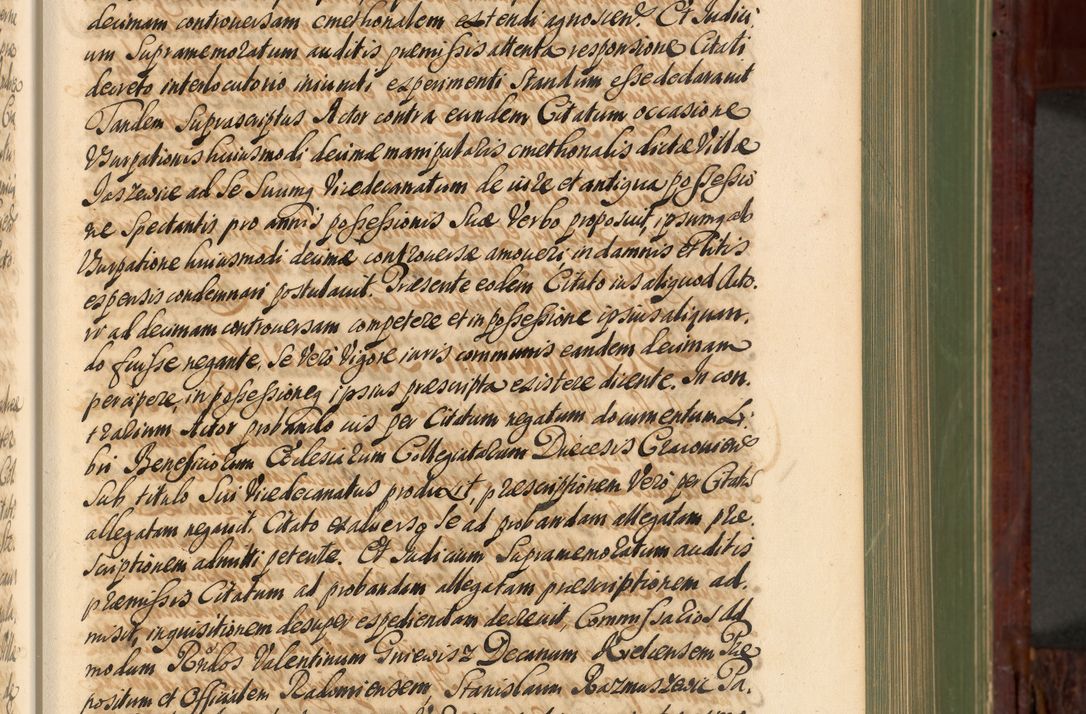 decimam controversam cmethonalem extendi agnoscend. Et Judici,
um Supramemoratum auditis præmissis attenta responsione Citati
decreto interlocutorio iniuncti experimenti Standum esse declaravit
Tandem Suprascriptus Actor contra eundem Citatum occasione
Usurpationis huiusmodi decimæ manipularis cmethonalis dictæ Villæ
Jaszewice ad Se Suumq Vicedecanatum de iure et antiqua possessio
ne Spectantis pro annis possessionis Suæ Verbo proposuit, ipsumq ab
Usurpatione huiusmodi decimæ controversæ amoveri, in damnis et litis
expensis condemnari postulavit. Præsente eodem Citato ius aliquod Acto.
ri ad decimam controversam competere et in possessione ipsius aliquan.
do fuisse negante, Se Vero Vigore iuris communis eandem decimam
percipere, in possessioneq ipsius præscripta existere dicente. In con.
trarium Actor probando ius per Citatum negatum documentum Li.
bri Beneficiorum Ecclesiarum Collegiatarum Diæcesis Cracovien
Sub titulo Sui Vicedecanatus produxit, præscriptionem Vero per Citatū
allegatam negavit. Citato ex adverso Se ad probandam allegatam præ.
scriptionem admitti petente. Et Judicium Supramemoratum auditis
præmissis Citatum ad probandam allegatam præscriptionem ad.
misit, inquisitionem desuper expediendam decrevit, Commissarios ad
modum Rndos Valentinum Gniewisz Decanum Kielcensem Præ
positum et Officialem Radomiensem, Stanislaum Razmuszewic Pa.